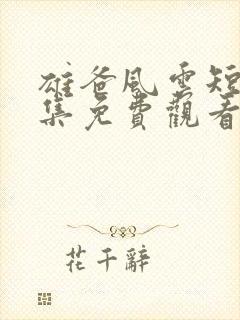 雄爸風雲短
集免費觀看
花千辭